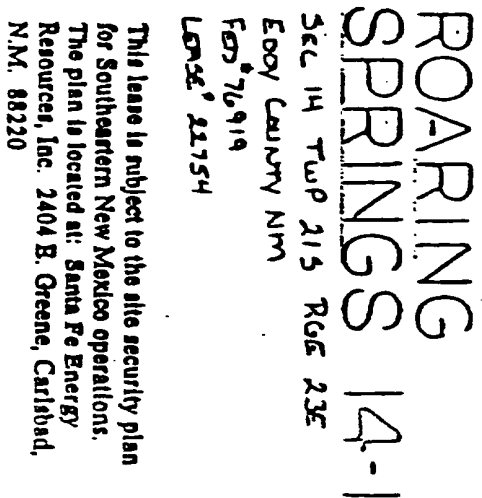 ROARING
SPRINGS 14-1
SEC 14 TWP 21S RGE 23E
EDDY COUNTY NM
FED# 76919
LEASE# 22754
This lease is subject to the site security plan
for Southeastern New Mexico operations.
The plan is located at: Santa Fe Energy
Resources, Inc. 2404 E. Greene, Carlsbad,
N.M. 88220